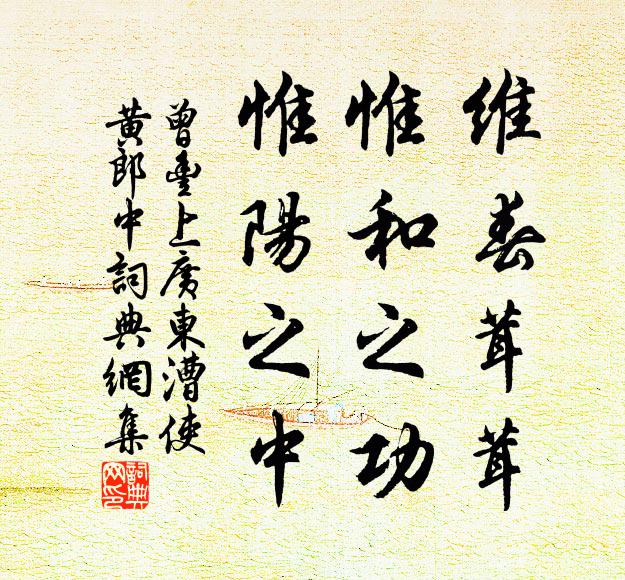 維春茸茸
惟和之功
惟陽之中
曾豊上廣東漕使
黄郎中詞典網集
詞典
网印